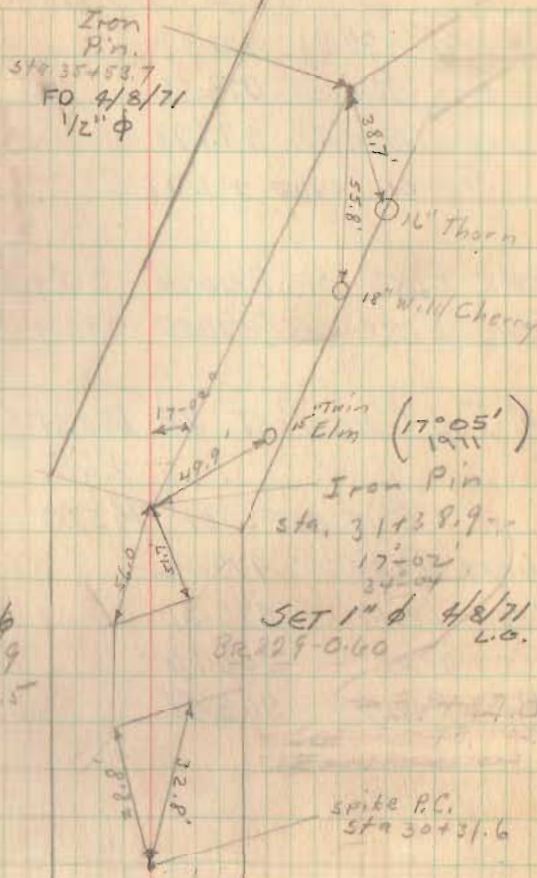 Iron
Pin.
sta. 35+53.7
FD 4/8/71
1/2" ϕ
38.7'
55.8'
16" Thorn
18" Wild Cherry
17-02
49.9'
15" Twin
Elm
(17°05'
1971)
Iron Pin
sta. 31+38.9
17°-02'
34°-04'
56.0
51.7
SET 1" ϕ 4/8/71
L.O.
BR 229-0.60
32.8'
spike P.C.
sta 30+31.6